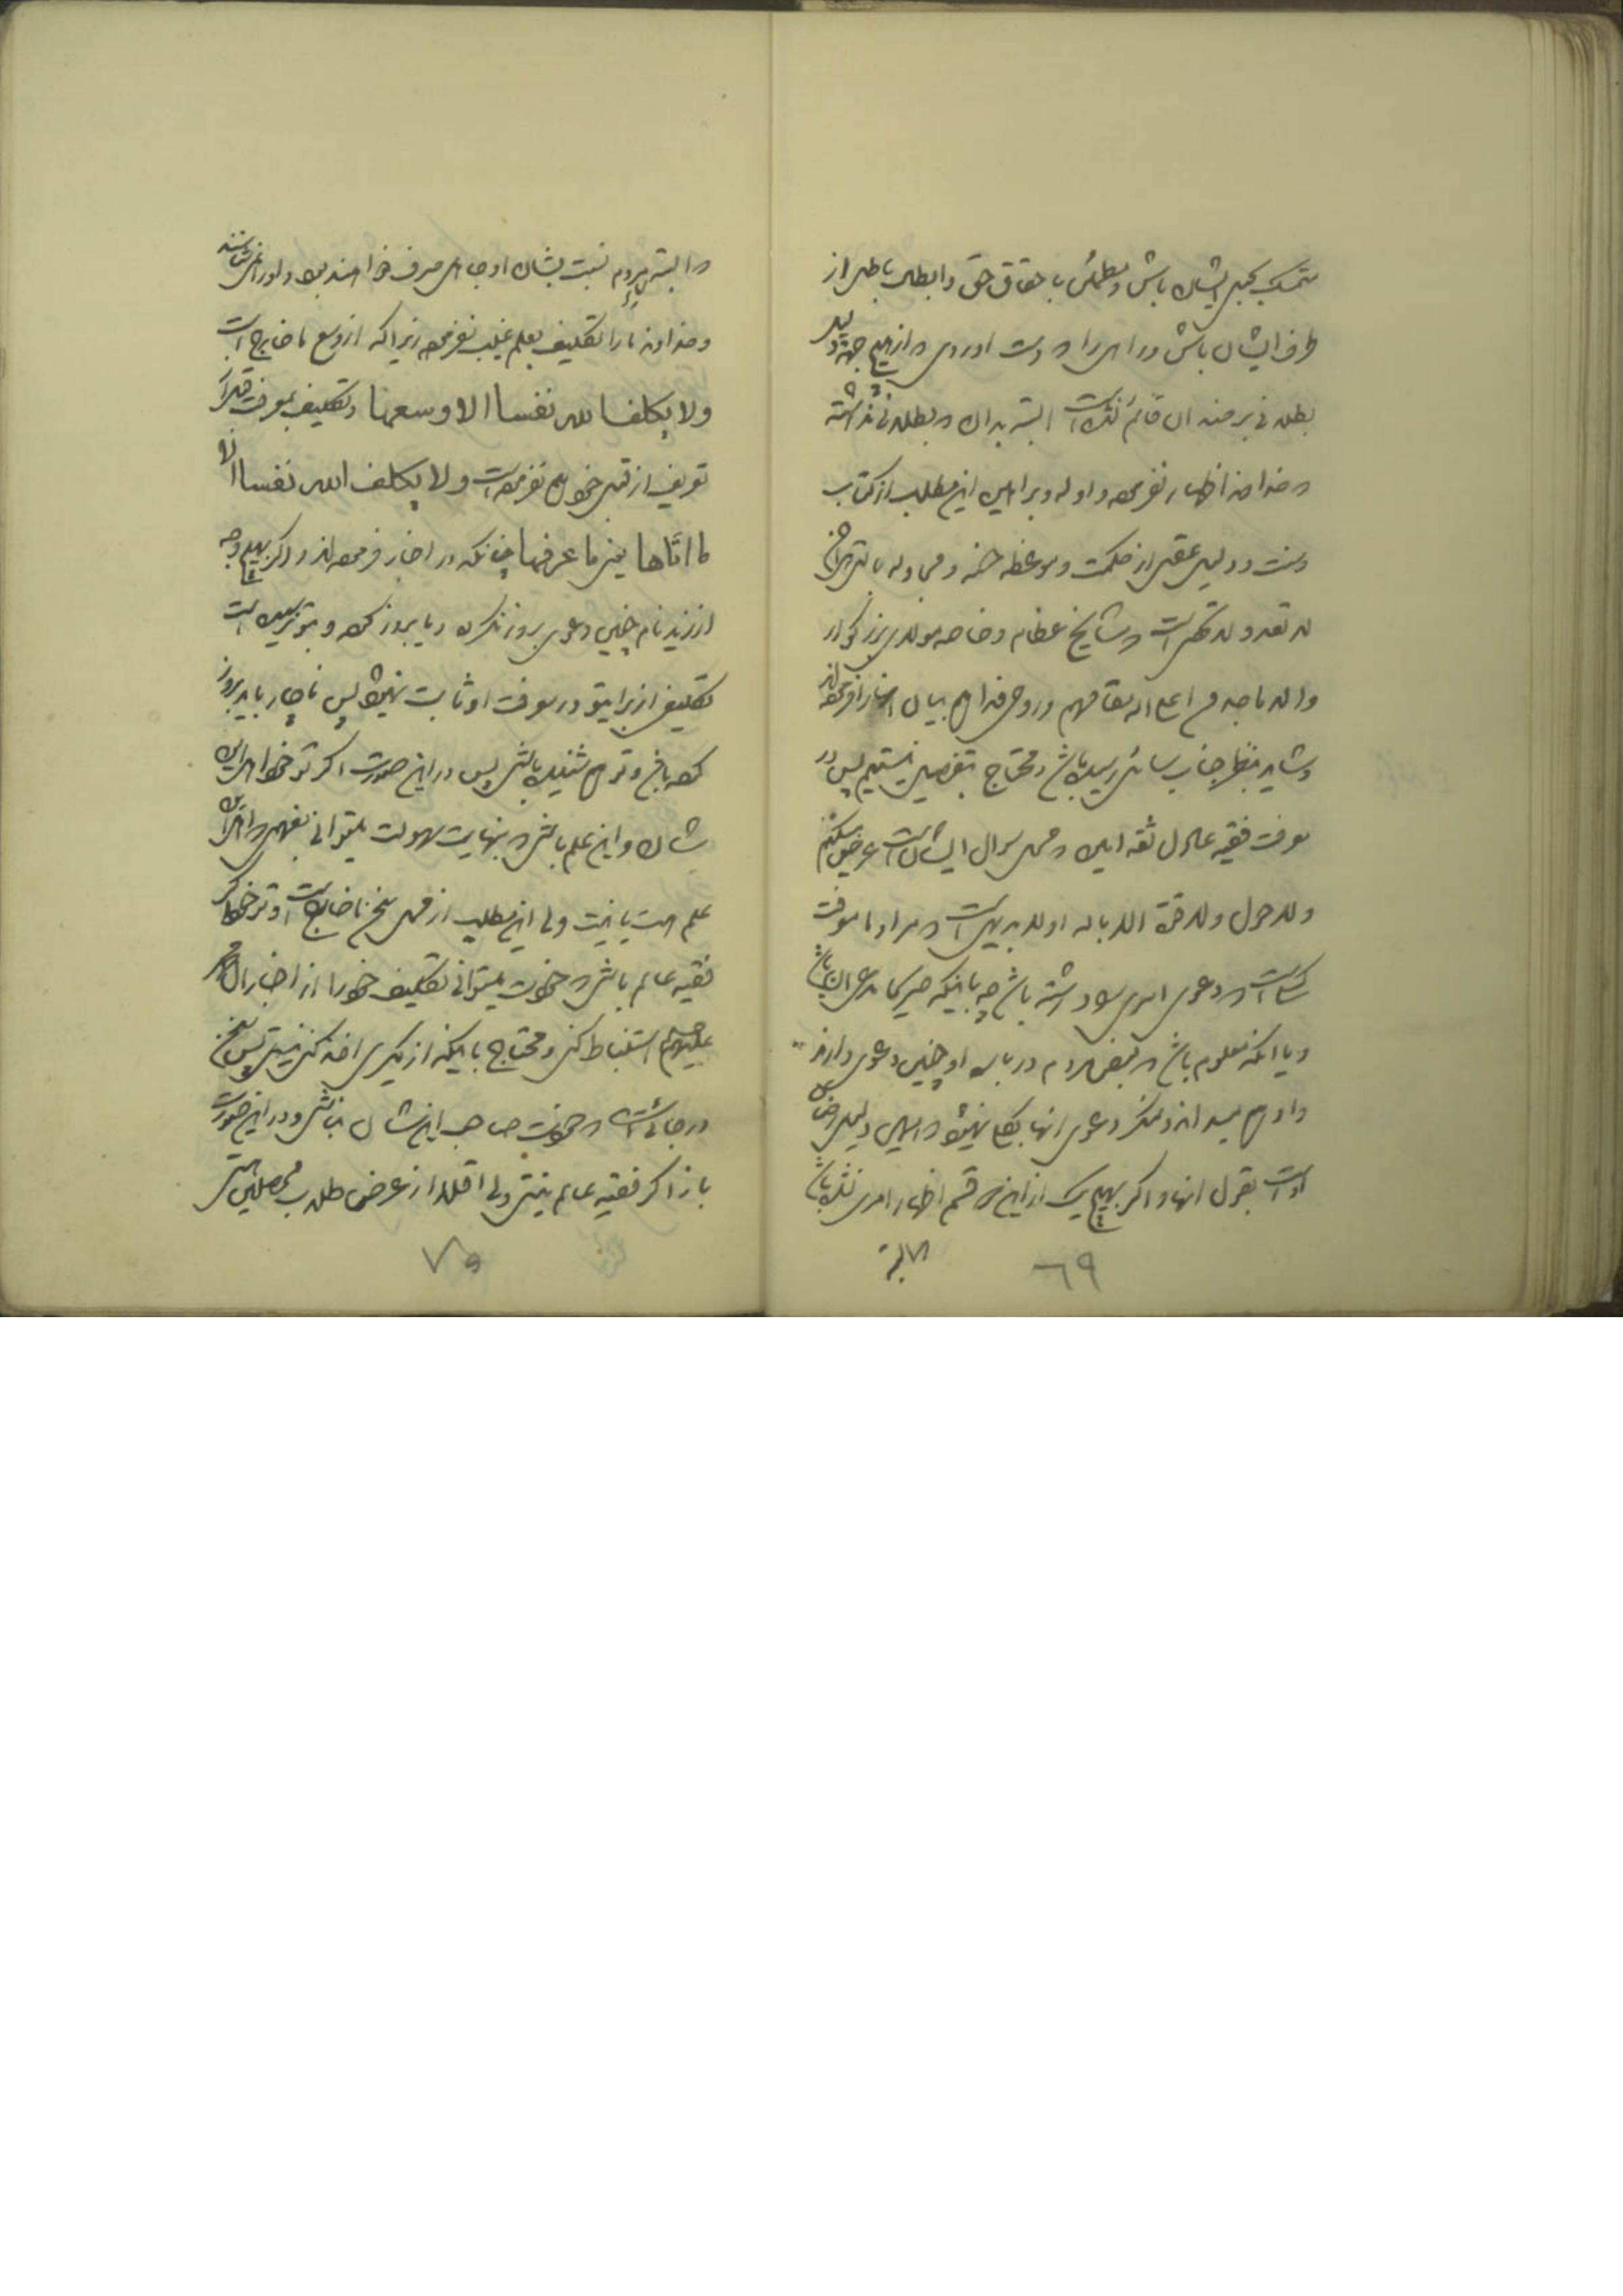 متمسک بحبل ایشان باش و مطمئن باحقاق حق و ابطال باطل از
طرف ایشان باش و در امری را که دست اوردی که از هیچ جهة دلیل
بطلانی بر ضد ان قائم نشده است البته بدان که بطلانی نداشته
که خداوند اظهار نفرموده و ادله و براهین این مطلب از کتاب
وسنت و دلیل عقل از حکمت و موعظه حسنه و مجادله بالتی هی احسن
لا تعد ولا تحصی است که مشایخ عظام و خاصه مولای بزرگوار
والد ماجدم اعلی الله مقامهم و روحی فداهم بیان انها را فرموده‌اند
و شاید بنظر جناب سائل رسیده باشد و محتاج بتفصیل نیستیم پس در
معرفت فقیه عادل ثقه امین که محل سوال ایشان است عرض میکنم
ولا حول ولا قوة الا بالله اولا بدیهی است که مراد ما معرفت
کسی است که دعوی امری نموده داشته باشد چه باینکه صریحا مدعی ان باشد
و یا انکه معلوم باشد که بعض مردم درباره او چنین دعوی دارند
و او هم میداند و منکر دعوی انها بکلی نمیشود که همین دلیل رضای
او است بقول انها و اگر بهیچ یک از این دو قسم اظهار امری نشده باشد
البته
٦٩
که البته مردم نسبت بشان او جاهل صرف خواهند بود و او را نمی‌شناسند
و خداوند ما را تکلیف بعلم غیب نفرموده زیرا که از وسع ما خارج است
ولا یکلف الله نفسا الا وسعها و تکلیف بمعرفت قبل از
تعریف از قبل خود هم نفرموده است ولا یکلف الله نفسا الا
ما اتاها یعنی ما عرفها چنانکه در اخبار فرموده‌اند و اگر بهیچ وجه
از زید نام چنین دعوی بروز نکرده و یا بروز کرده و بتو نرسیده است
تکلیفی از برای تو در معرفت او ثابت نمیشود پس ناچار باید بروز
کرده باشد و تو هم شنیده باشی پس در این صورت اگر تو خود دارای این
شان و این علم باشی که بنهایت سهولت میتوانی بفهمی که دارای
علم هست یا نیست ولی این مطلب از محل سخن ما خارج است و تو خود اگر
فقیه عالم باشی که خودت میتوانی تکلیف خود را از اخبار ال محمد
علیهم السلام استنباط کنی و محتاج باینکه از دیگری اخذ کنی نیستی پس سخن
در جائی است که خودت صاحب این شان نباشی و در این صورت
باز اگر فقیه عالم نیستی ولی اقلا از عرض طلاب و محصلین هستی
٧٠